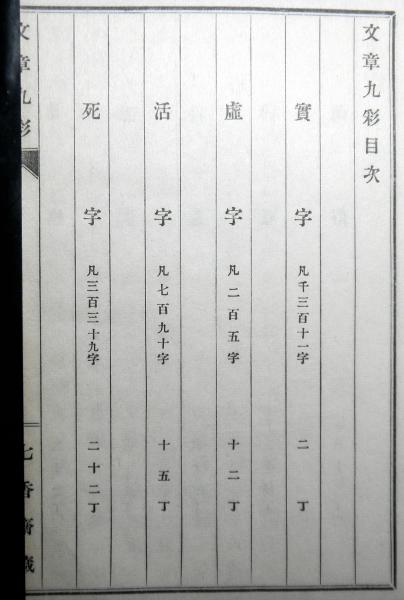 文章九彩目次
實字 凡千三百十一字 二丁
虛字 凡二百五字 十二丁
活字 凡七百九十字 十五丁
死字 凡三百三十九字 二十二丁
文章九彩
七香齋藏